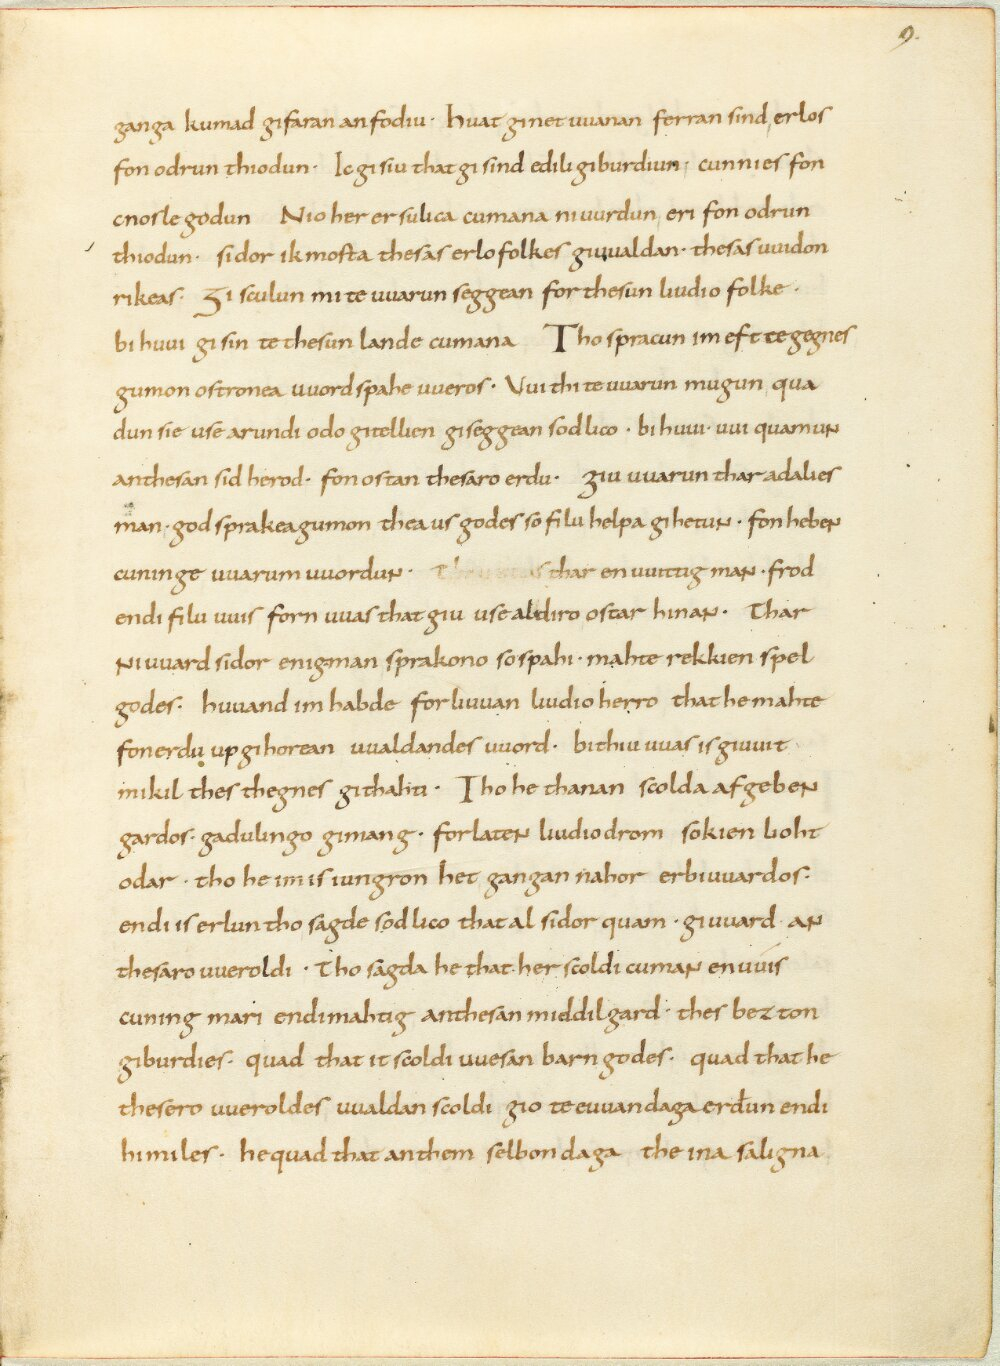 9.
ganga kumad gifaran an fodiu · huat gi net uuanan ferran sind erlos
fon odrun thiodun · Ic gisiu that gi sind ediligiburdiun · cunnies fon
cnosle godun Nio her er sulica cumana ni uurdun eri fon odrun
thiodun · sidor ik mosta thesas erlo folkes giuualdan · thesas uuidon
rikeas · Gi sculun mi te uuarun seggean for thesun liudio folke ·
bi huui gi sin te thesun lande cumana Tho spracun im eft tegegnes
gumon ostronea uuordspahe uueros · Uui thi te uuarun mugun qua
dun sie use arundi odo gitellien giseggean sodlico · bi huui · uui quamun
an thesan sid herod · fon ostan thesaro erdu · giu uuarun thar adalies
man · godsprakea gumon thea us godes so filu helpa gihetun · fon heben
cuninge uuarum uuordun · thar en uuittig man · frod
endi filu uuis forn uuas that giu use aldiro ostar hinan · Thar
ni uuard sidor enigman sprakono so spahi · mahte rekkien spel
godes · huuand im habde forliuuan liudio herro that he mahte
fon erdu up gihorean uualdandes uuord · bithiu uuas is giuuit
mikil thes thegnes githahti · Tho he thanan scolda afgeben
gardos · gadulingo gimang · forlaten liudio drom sokien lioht
odar · tho he im is iungron het gangan nahor erbiuuardos ·
endi is erlun tho sagde sodlico that al sidor quam · giuuard an
thesaro uueroldi · Tho sagda he that her scoldi cuman en uuis
cuning mari endi mahtig an thesan middilgard · thes bezton
giburdies · quad that it scoldi uuesan barn godes · quad that he
thesero uueroldes uualdan scoldi gio te euuandaga erđun endi
himiles · he quad that an them selbon daga the ina saligna